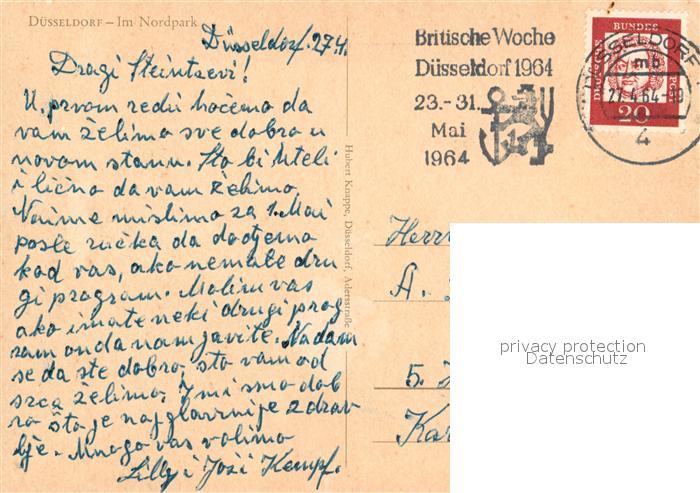 DÜSSELDORF – Im Nordpark
Düsseldorf. 27.4.
Dragi Steintzevi!
U prvom redu hoćemo da
vam želimo sve dobro u
novom stanu. Što bi hteli
i lično da vam želimo.
Naime mislimo za 1. Mai
posle ručka da dodjemo
kod vas, ako nemate dru
gi program. Molim vas
ako imate neki drugi prog
ram onda nam javite. Nadam
se da ste dobro, što vam od
srca želimo. I mi smo dob
ro što je najglavnije zdrav
lje. Mnogo vas volimo
Lilly i Joži Kempf.
Hubert Knappe, Düsseldorf, Adersstraße
Britische Woche
Düsseldorf 1964
23.-31.
Mai
1964
DEUTSCHE
BUNDES
POST
20
DÜSSELDORF
mb
27.4.64
4
Herrn
A.
5.
Kar
privacy protection
Datenschutz